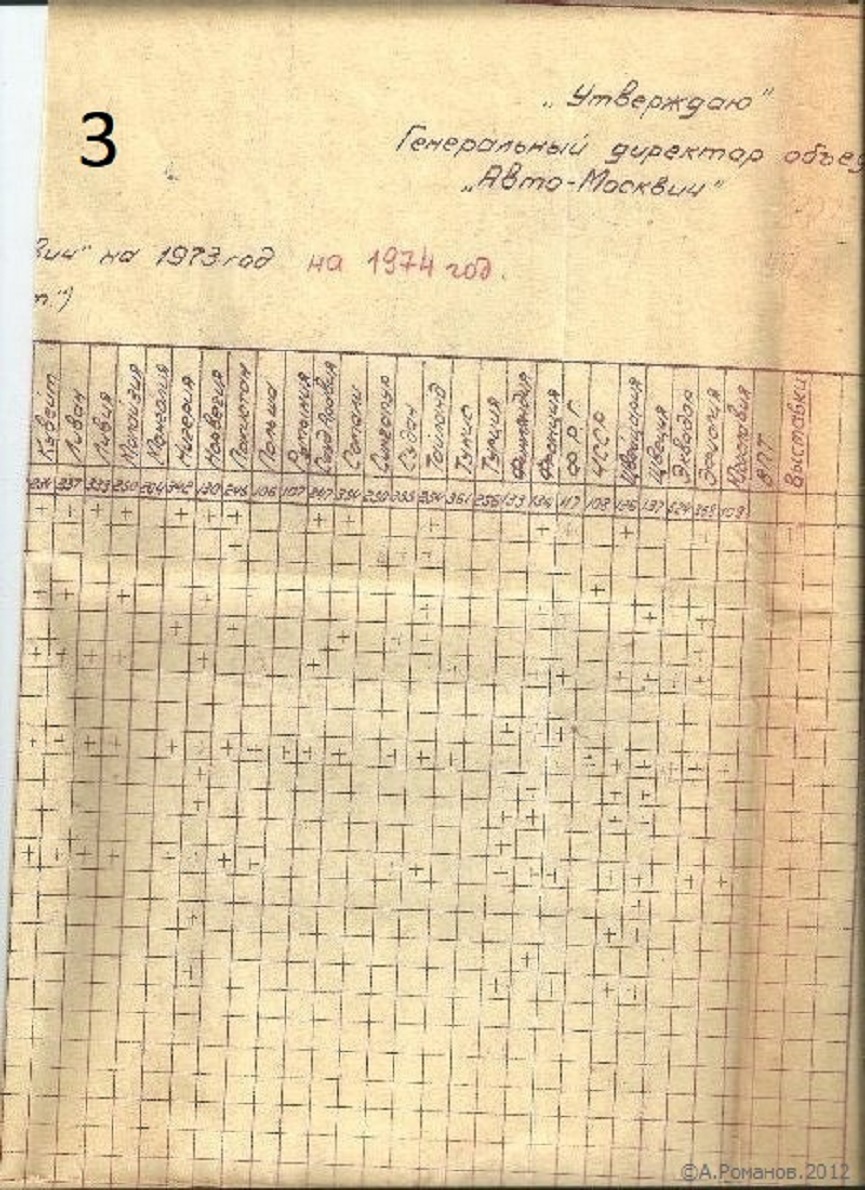 3
„Утверждаю"
Генеральный директор объед
„Авто-Москвич"
вич" на 1973 год на 1974 год.
т.")
Кувейт Ливан Ливия Малайзия Монголия Нигерия Норвегия Пакистан Польша Румыния Сауд. Аравия Сомали Сингапур Судан Тайланд Тунис Турция Финляндия Франция ФРГ ЧССР Швейцария Швеция Эквадор Эфиопия Югославия ВПТ Выставки
337 333 250 204 342 130 245 106 107 247 354 250 355 254 361 256 133 134 117 108 136 137 524 368 109
©А.Романов.2012